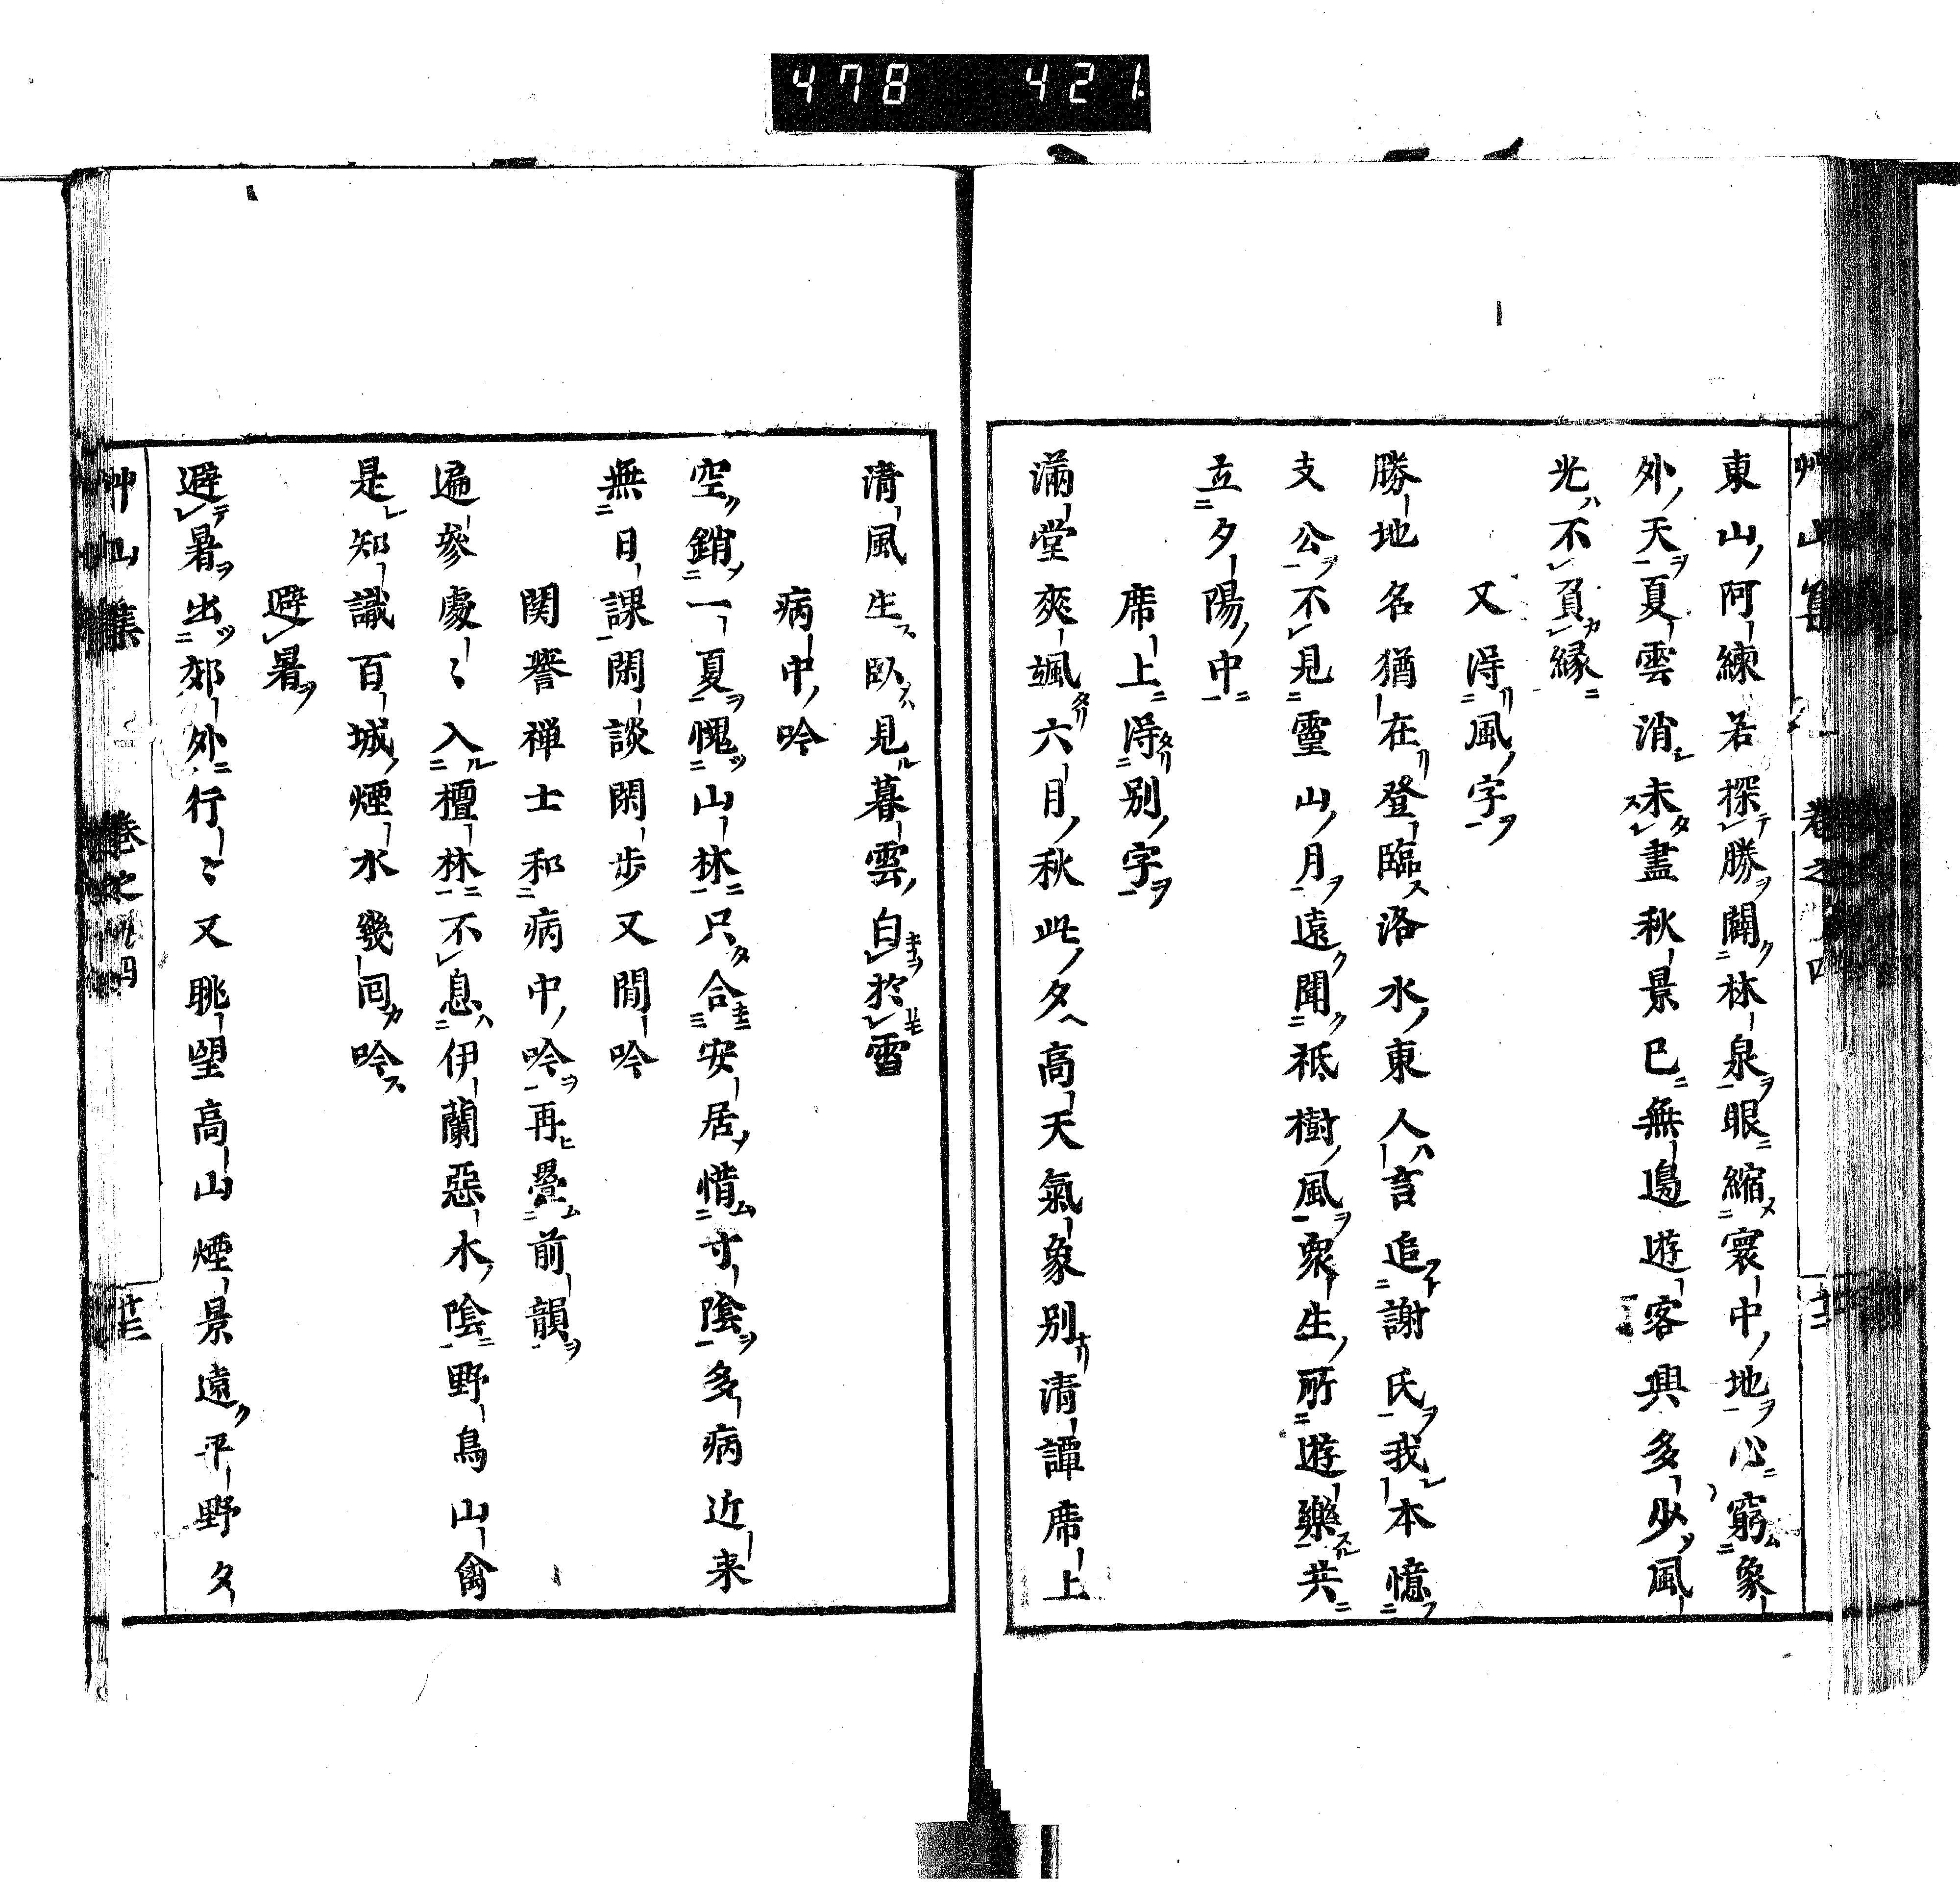 478 421
東山阿練若探勝闢林泉眼縮寰中地心窮象
外天夏雲消未盡秋景已無邊遊客興多少風
光不負縁
又得風字
勝地名猶在登臨洛水東人言追謝氏我本憶
支公不見靈山月遠聞祇樹風衆生所遊樂共
立夕陽中
席上得別字
滿堂爽颯六月秋此夕高天氣象別清譚席上
清風生臥見暮雲白於雪
病中吟
空銷一夏愧山林只合安居惜寸陰多病近来
無日課閑談閑歩又閒吟
関誉禅士和病中吟再疊前韻
遍參處〻入檀林不息伊蘭惡木陰野鳥山禽
是知識百城煙水幾回吟
避暑
避暑出郊外行〻又眺望高山煙景遠平野夕
艸山集 卷之 四 廿三